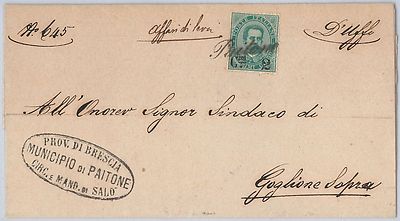 No 645 affari di leva D'Uffo
POSTE ITALIANE
Paitone
2
All'Onorev Signor Sindaco di
Goglione Sopra
PROV. DI BRESCIA
MUNICIPIO DI PAITONE
CIRC. E MAND. DI SALO